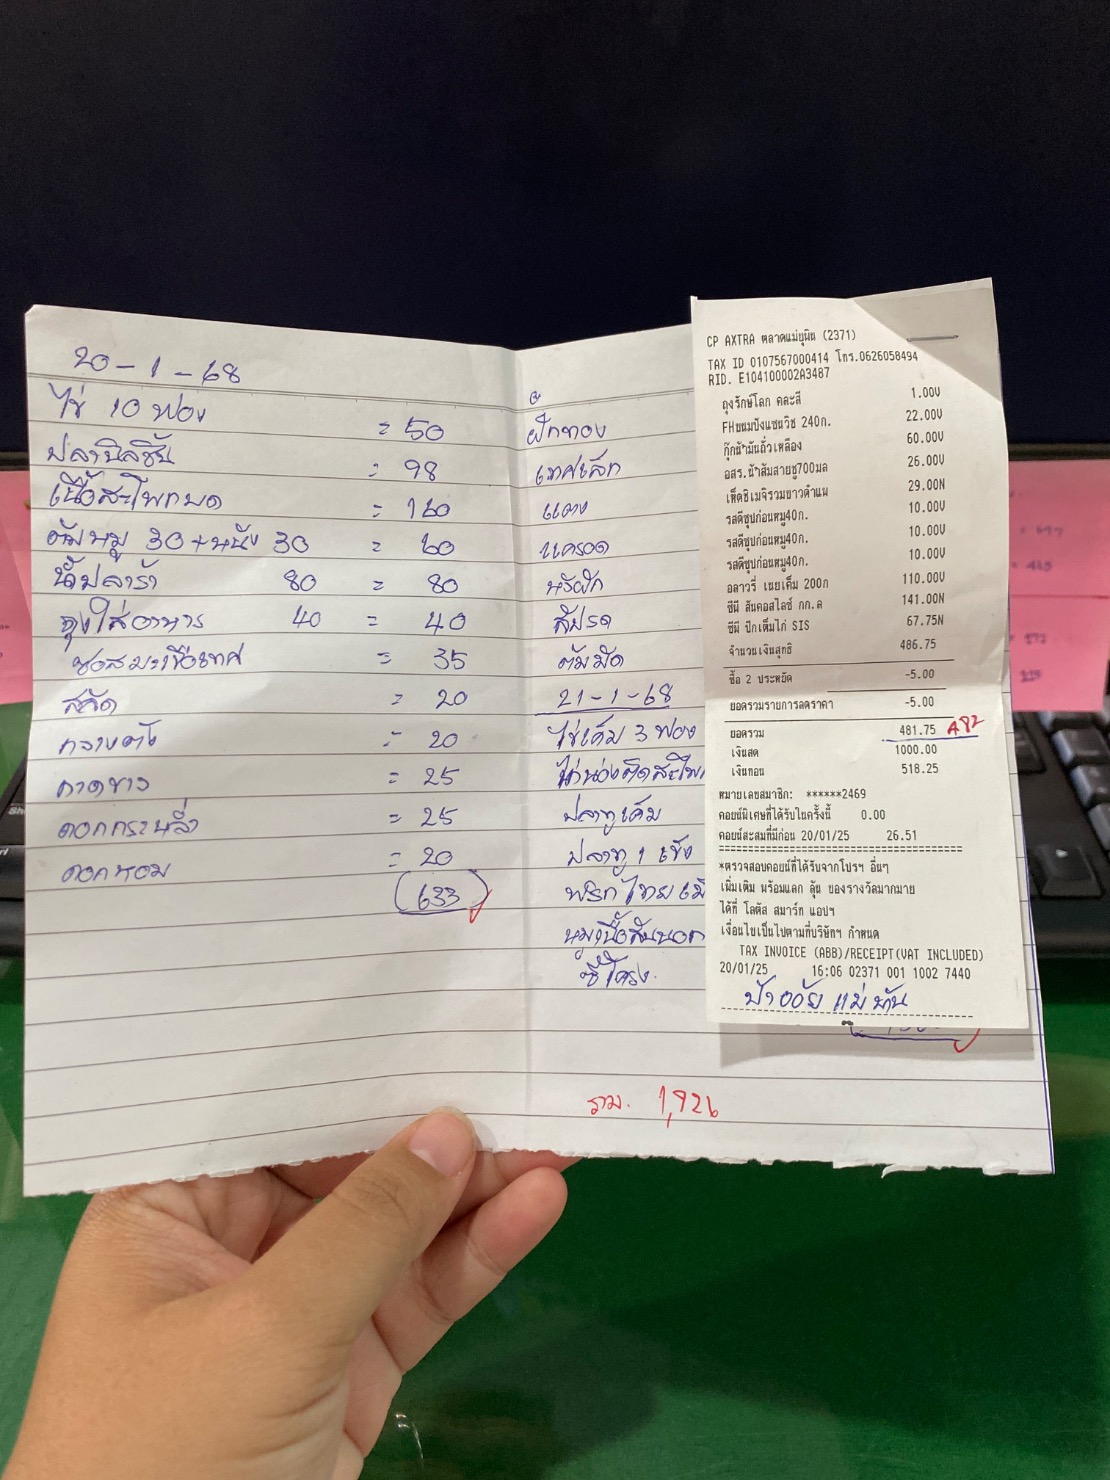 20-1-68
ไข่ 10 ฟอง = 50
ปลานิลชิ้น = 98
เนื้อสะโพกบด = 160
ตับหมู 30+หนัง 30 = 60
น้ำปลาร้า 80 = 80
ถุงใส่อาหาร 40 = 40
ซอสมะเขือเทศ = 35
สลัด = 20
กวางตุ้ง = 20
กาดขาว = 25
ดอกกระหล่ำ = 25
ดอกหอม = 20
633
ฟักทอง
แตง
แครอท
ต้มมัด
21-1-68
ไข่เค็ม 3 ฟอง
ปลาทูเค็ม
ปลาทู 1 เข่ง
พริกไทย
หมูเนื้อสันนอก
ซี่โครง
รวม. 1,926
CP AXTRA ตลาดแม่ยุพิน (2371)
TAX ID 0107567000414 โทร.0626058494
RID. E104100002A3487
ถุงรักษ์โลก คละสี 1.00U
FHขนมปังแซนวิช 240ก. 22.00U
กุ๊กน้ำมันถั่วเหลือง 60.00U
อสร.น้ำส้มสายชู700มล 26.00U
เห็ดชิเมจิรวมขาวดำแพ 29.00N
รสดีซุปก้อนหมู40ก. 10.00U
รสดีซุปก้อนหมู40ก. 10.00U
รสดีซุปก้อนหมู40ก. 10.00U
อลาวรี่ เนยเค็ม 200ก 110.00U
ซีพี สันคอสไลซ์ กก.ล 141.00N
ซีพี ปีกเต็มไก่ SIS 67.75N
จำนวนเงินสุทธิ 486.75
ซื้อ 2 ประหยัด -5.00
ยอดรวมรายการลดราคา -5.00
ยอดรวม 481.75 482
เงินสด 1000.00
เงินทอน 518.25
หมายเลขสมาชิก: ******2469
คอยน์พิเศษที่ได้รับในครั้งนี้ 0.00
คอยน์สะสมที่มีก่อน 20/01/25 26.51
*ตรวจสอบคอยน์ที่ได้รับจากโปรฯ อื่นๆ
เพิ่มเติม พร้อมแลก ลุ้น ของรางวัลมากมาย
ได้ที่ โลตัส สมาร์ท แอปฯ
เงื่อนไขเป็นไปตามที่บริษัทฯ กำหนด
TAX INVOICE (ABB)/RECEIPT(VAT INCLUDED)
20/01/25 16:06 02371 001 1002 7440